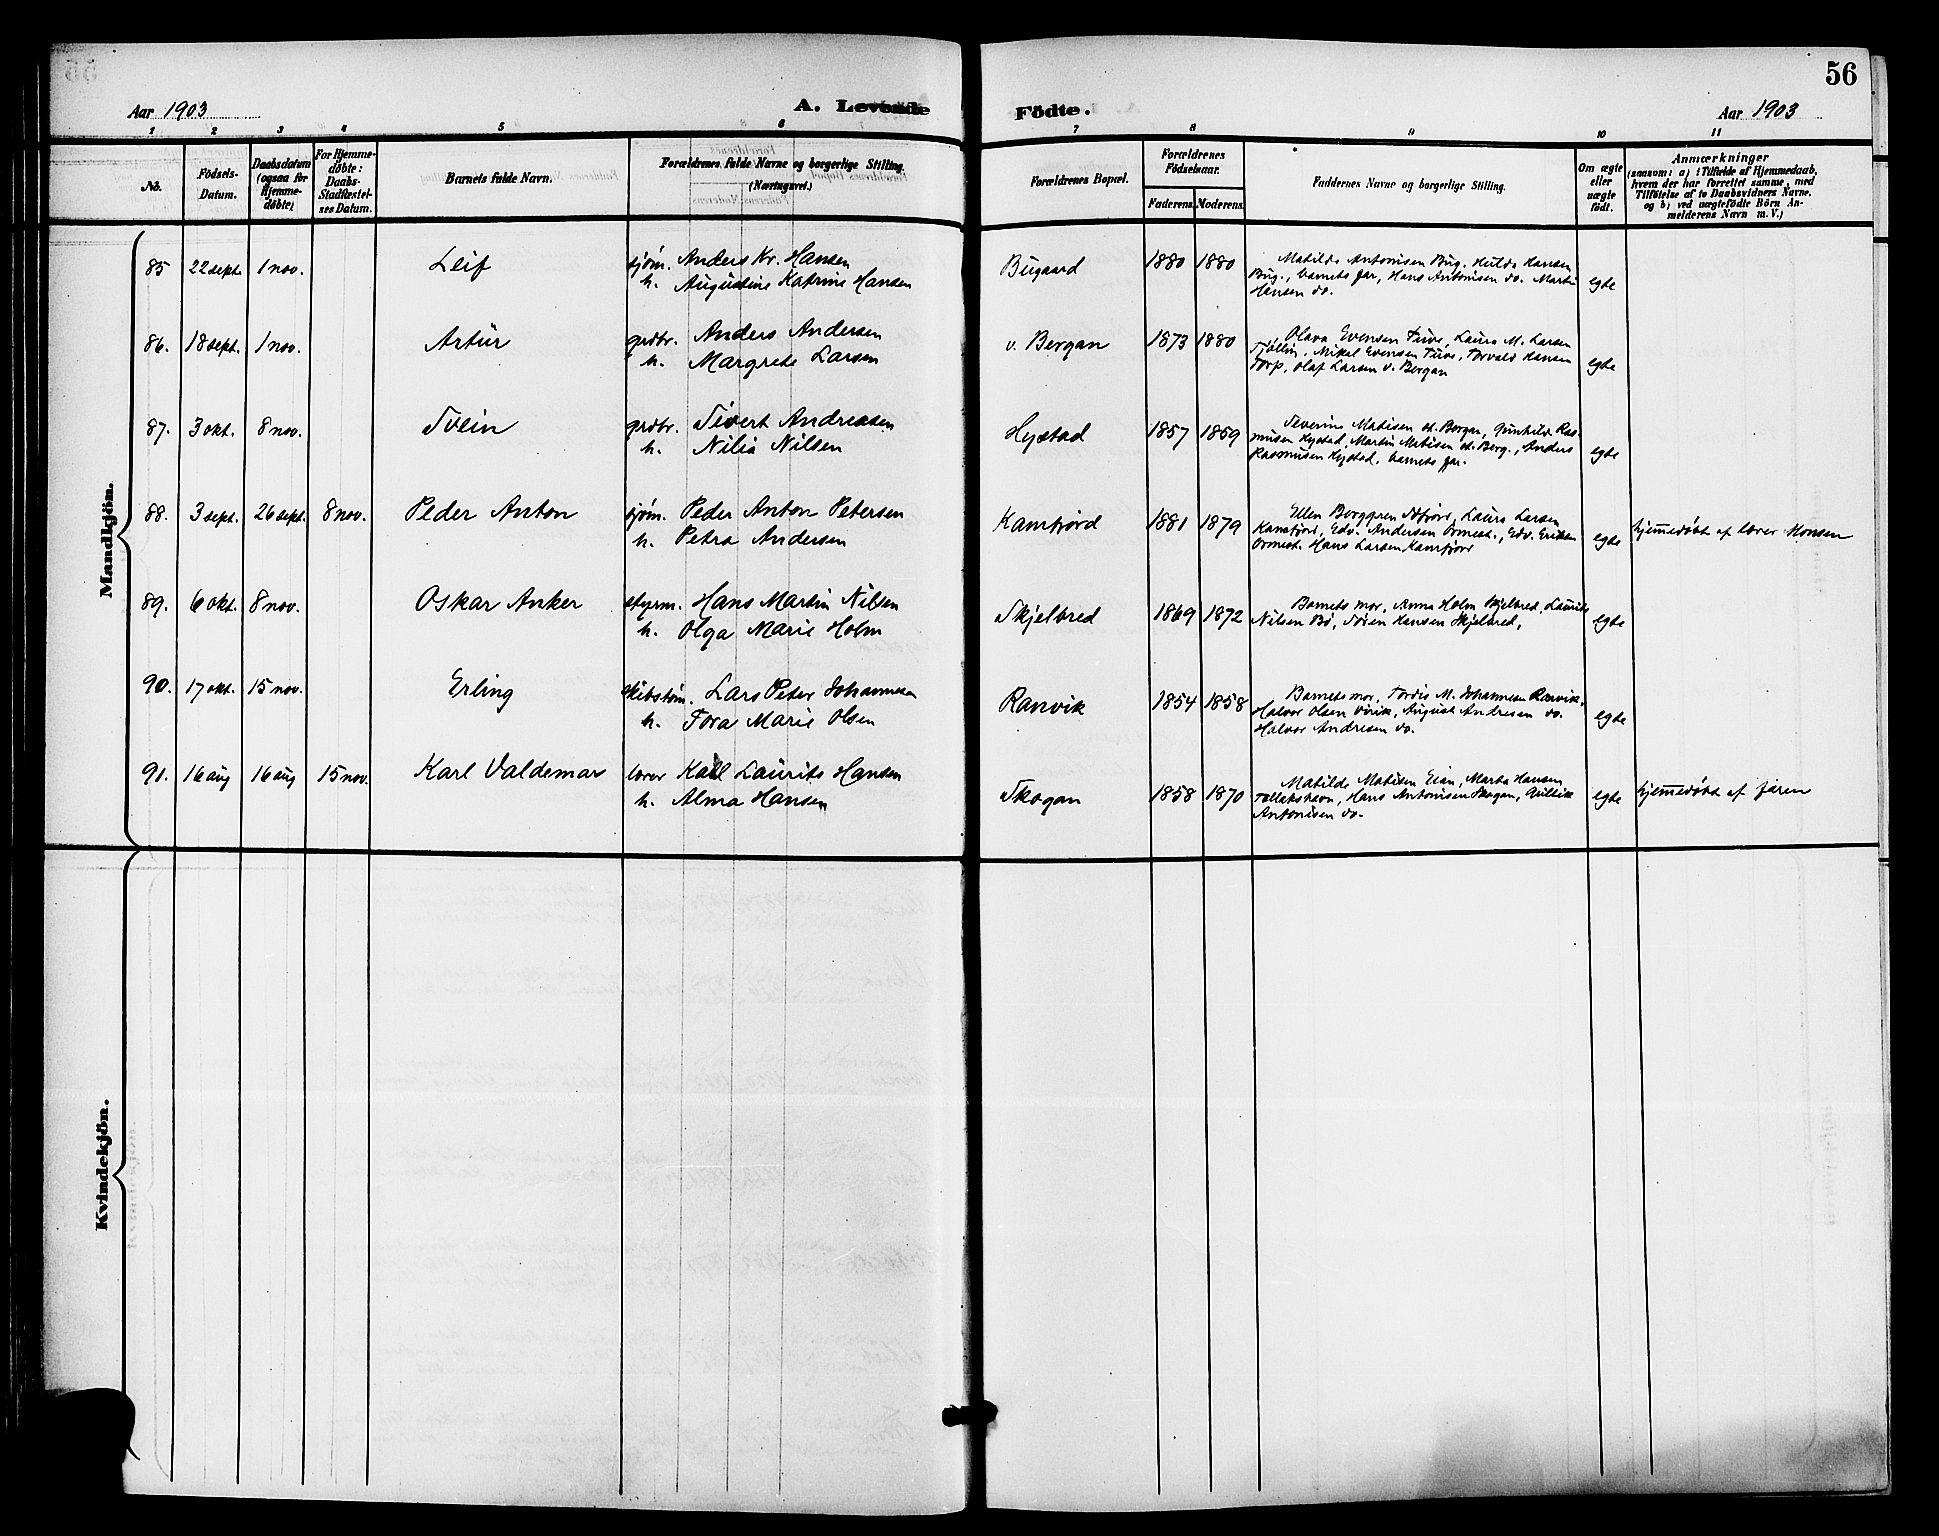 56
Aar 1903
A. Levende
Födte.
Aar 1903
1 2 3 4 5 6 7 8 9 10 11
No.
Födsels-
Datum.
Daabsdatum
(ogsaa for
Hjemme-
döbte)
For Hjemme-
döbte:
Daabs-
Stadfæstel-
ses Datum.
Barnets fulde Navn.
Forældrenes fulde Navne og borgerlige Stilling.
(Næringsvei.)
Forældrenes Bopæl.
Forældrenes
Födselsaar.
Faderens.
Moderens.
Faddernes Navne og borgerlige Stilling.
Om ægte
eller
uægte
födt.
Anmærkninger
(saasom: a) i Tilfælde af Hjemmedaab,
hvem der har forrettet samme, med
Tilföielse af to Daabsvidners Navne,
og b) ved uægtefödte Börn An-
melderens Navn m. V.)
Mandkjön.
85 22 sept. 1 nov. Leif
sjøm. Anders Kr. Hansen
h. Augustine Katrine Hansen
Bugaard 1880 1880
Matilde Antonisen Bug. Hulda Hansen
Bug., barnets far, Hans Antonisen do. Martin
Hansen do.
egte
86. 18 sept. 1 nov. Artur
grdbr. Anders Andersen
h. Margrete Larsen
v. Bergan 1873 1880
Olava Evensen Tuve, Laura M. Larsen
Tjøllin, Mikal Evensen Tuve, Torvald Hansen
Torp, Olaf Larsen v. Bergan
egte
87. 3 okt. 8 nov. Svein
grdbr. Sivert Andreasen
h. Nilia Nilsen
Hystad 1857 1859
Severine Matisen st. Bergan, Gunhild Ras-
musen Hystad, Martin Matisen st. Berg., Anders
Rasmusen Hystad, barnets far.
egte
88. 3 sept. 26 sept. 8 nov. Peder Anton
sjøm. Peder Anton Petersen
h. Petra Andersen
Kamfjord 1881 1879
Ellen Berggren, Laura Larsen
Kamfjord, Edv. Andersen Ormest., Edv. Eriksen
Ormest. Hans Larsen Kamfjord
egte
hjemmedøbt af lærer Monsen
89. 6 okt. 8 nov. Oskar Anker
styrm. Hans Martin Nilsen
h. Olga Marie Holm
Skjelbred 1869 1872
Barnets mor, Anna Holm Skjelbred, Laurits
Nilsen Bø, Søren Hansen Skjelbred,
egte
90. 17 okt. 15 nov. Erling
skibstøm. Lars Peter Johannesen
h. Tora Marie Olsen
Ranvik 1854 1858
Barnets mor, Tordis M. Johannesen Ranvik,
Halvor Olsen Virik, August Andresen do.
Halvor Andresen do.
egte
91. 16 aug 16 aug 15 nov. Karl Valdemar
lærer Karl Laurits Hansen
h. Alma Hansen
Skogan 1858 1870
Matilde Matisen Eian, Marta Hansen
Tallakshavn, Hans Antonisen Skogan, Gullik
Antonisen do.
egte
hjemmedøbt af faren
Kvindekjön.